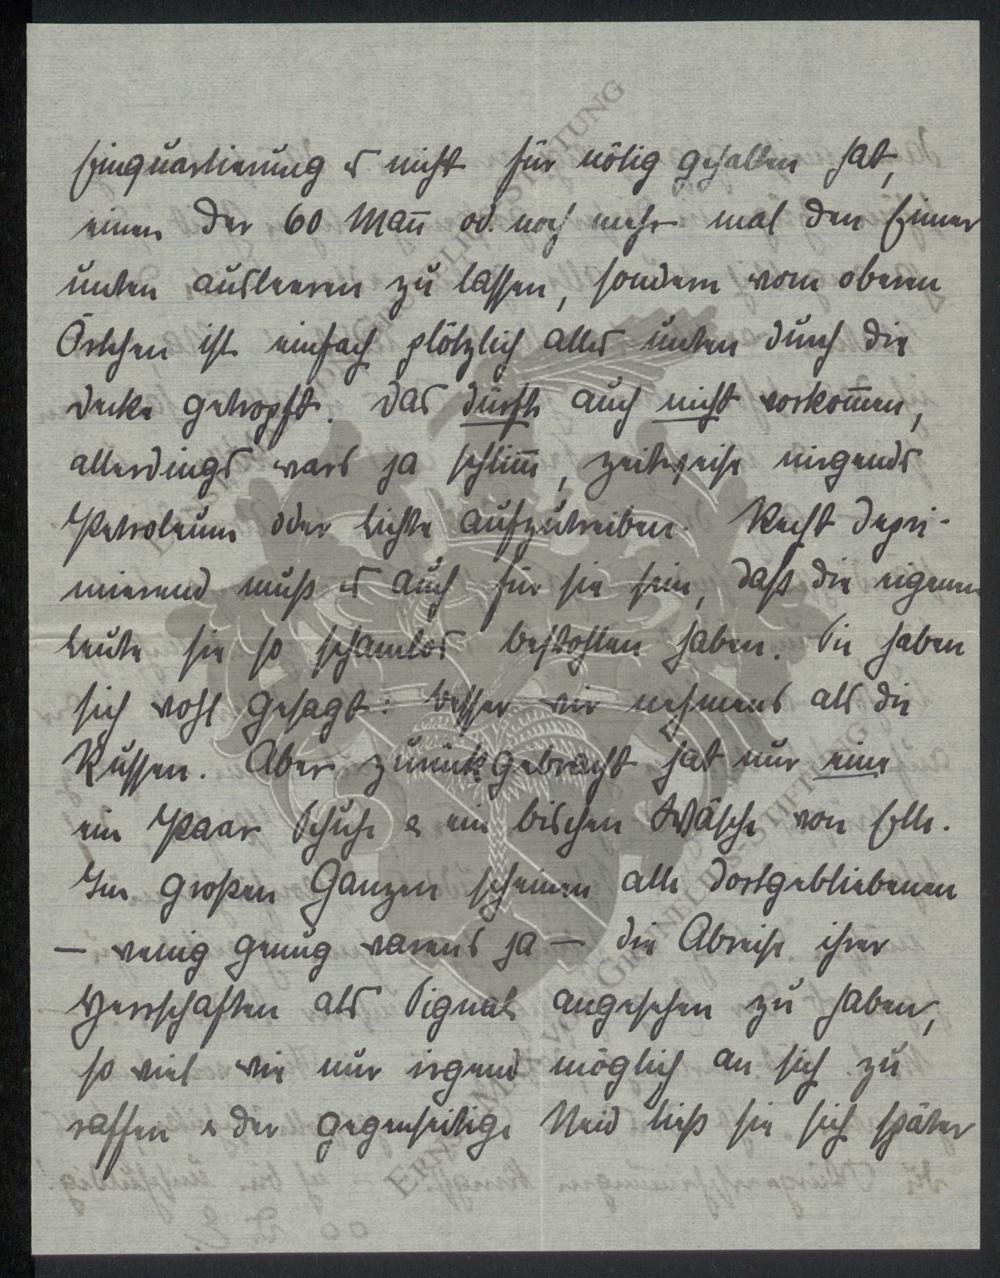 Einquartierung es nicht für nötig gehalten hat,
einen der 60 Mañ od. noch mehr mal den Eimer
unten ausleeren zu lassen, sondern vom oberen
Örtchen ist einfach plötzlich alles unten durch die
Decke getropft. Das dürfte auch nicht vorkom̄en,
allerdings wars ja schlim̄, zeitweise nirgends
Petroleum oder Lichte aufzutreiben. Recht depri-
mierend muß es auch für sie sein, daß die eigenen
Leute sie so schamlos bestohlen haben. Die haben
sich wohl gesagt: besser wir nehmens als die
Russen. Aber zurückgebracht hat nur eine
ein Paar Schuhe & ein bischen Wäsche von Elle.
Im großen Ganzen scheinen alle dortgebliebenen
— wenig genug warens ja — die Abreise ihrer
Herrschaften als Signal angesehen zu haben,
so viel wie nur irgend möglich an sich zu
raffen & der gegenseitige Neid ließ sie sich später